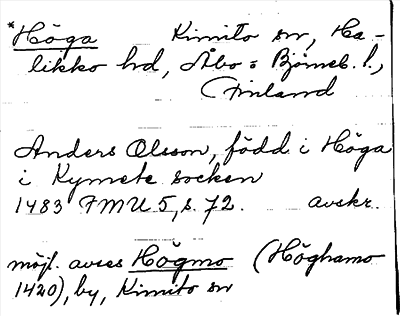 *Höga Kimito sn, Ha-
likko hd, Åbo o Björneb. l.,
Finland
Anders Olsson, född i Höga
i Kymete socken
1483 FMU 5, s. 72. avskr.
möjl. avses Högmo (Höghamo
1420), by, Kimito sn